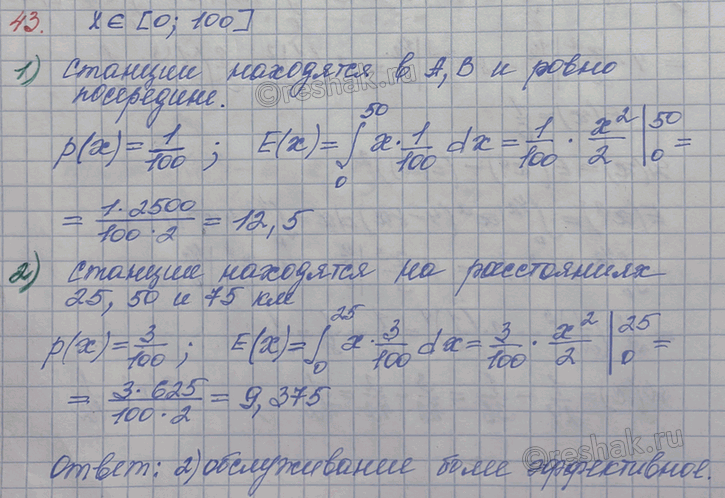 43. X ∈ [0; 100]
1) Станции находятся в А, В и ровно
посередине.
p(x) = 1/100 ; E(x) = ∫₀⁵⁰ x · 1/100 dx = 1/100 · x²/2 |₀⁵⁰ =
= 1·2500/100·2 = 12,5
2) Станции находятся на расстояниях
25, 50 и 75 км
p(x) = 3/100 ; E(x) = ∫₀²⁵ x · 3/100 dx = 3/100 · x²/2 |₀²⁵ =
= 3·625/100·2 = 9,375
Ответ: 2) обслуживание более эффективное.
©reshak.ru
©reshak.ru
©reshak.ru